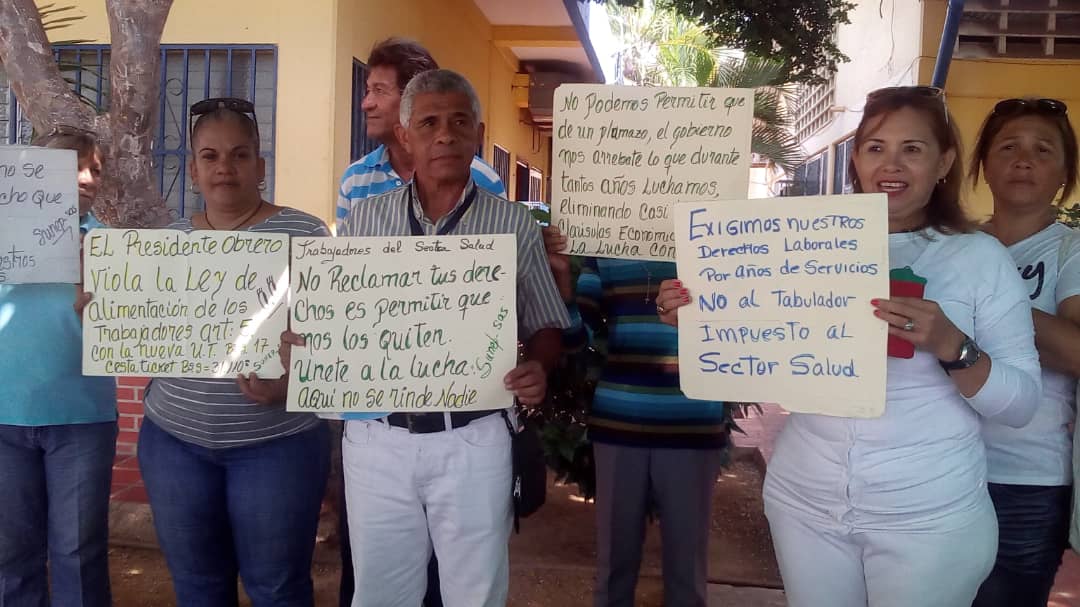 no se
cho que
sunep-sas
stros
s
El Presidente Obrero
Viola la Ley de
Alimentación de los
Trabajadores art:
con la nueva U.T. Bs: 17
cesta ticket Bs=
Trabajadores del Sector Salud
No Reclamar tus dere-
chos es permitir que
nos los Quiten.
Unete a la lucha:
Aqui no se rinde Nadie
Sunep/sas
No Podemos Permitir que
de un plamazo, el gobierno
nos arrebate lo que durante
tantos años Luchamos,
eliminando Casi
Claúsulas Economic
La Lucha Con
Exigimos nuestros
Derechos Laborales
Por años de Servicios
No al Tabulador
Impuesto al
Sector Salud